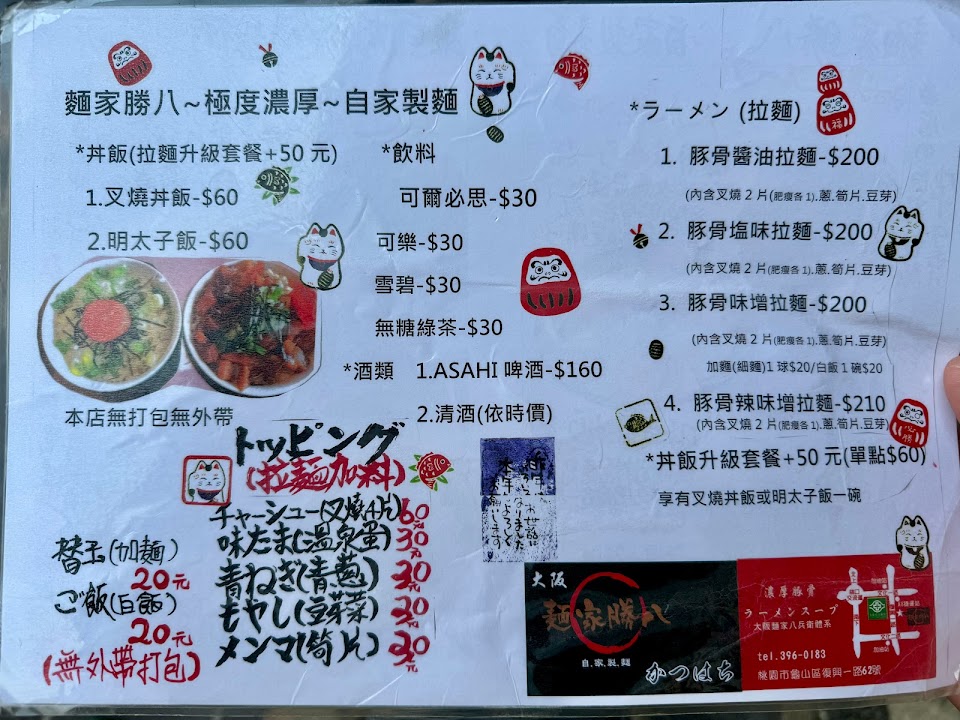 麵家勝八~極度濃厚~自家製麵
*丼飯(拉麵升級套餐+50 元)
1.叉燒丼飯-$60
2.明太子飯-$60
本店無打包無外帶
*飲料
可爾必思-$30
可樂-$30
雪碧-$30
無糖綠茶-$30
*酒類 1.ASAHI 啤酒-$160
2.清酒(依時價)
*ラーメン (拉麵)
福
1. 豚骨醬油拉麵-$200
(內含叉燒 2 片(肥瘦各 1).蔥.筍片.豆芽)
2. 豚骨塩味拉麵-$200
(內含叉燒 2 片(肥瘦各 1).蔥.筍片.豆芽)
3. 豚骨味增拉麵-$200
(內含叉燒 2 片(肥瘦各 1).蔥.筍片.豆芽)
加麵(細麵)1 球$20/白飯 1 碗$20
4. 豚骨辣味增拉麵-$210
(內含叉燒 2 片(肥瘦各 1).蔥.筍片.豆芽)
必勝
*丼飯升級套餐+50 元(單點$60)
享有叉燒丼飯或明太子飯一碗
トッピング
(拉麵加料)
チャーシュー(叉燒4片)60元
味たま(温泉蛋)30元
青ねぎ(青蔥)30元
もやし(豆芽菜)20元
メンマ(筍片)30元
替玉(加麵)
20元
ご飯(白飯)
20元
(無外帶打包)
大阪
麵家勝八
自.家.製.麵
かつはち
濃厚豚骨
ラーメンスープ
大阪麵家八兵衛體系
tel.396-0183
桃園市龜山區復興一路62號